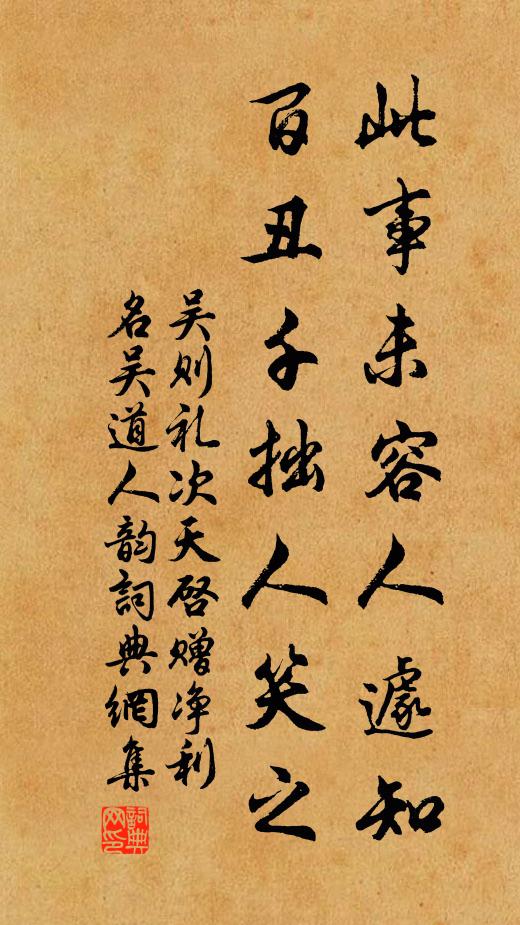 此事未容人遽知
百丑千拙人笑之
吴则礼次天启赠净利
名吴道人韵詞典網集
詞典网印